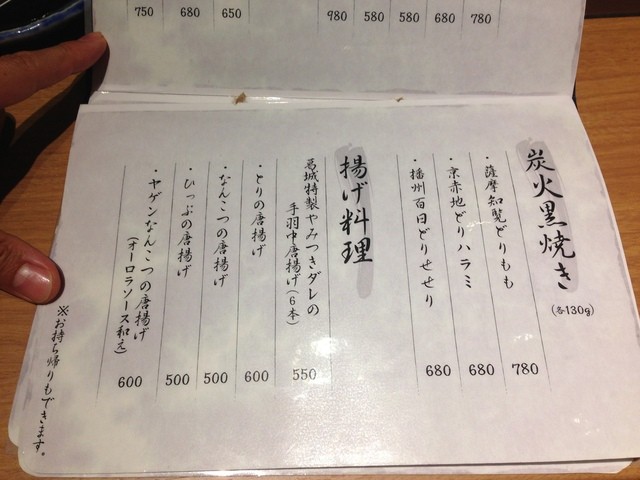 750
680
650
980
580
580
680
780
炭火黒焼き
(各130g)
・薩摩知覧どりもも
780
・京赤地どりハラミ
680
・播州百日どりせせり
680
揚げ料理
葛城特製やみつきダレの
手羽中唐揚げ(6本)
550
・とりの唐揚げ
600
・なんこつの唐揚げ
500
・ひっぷの唐揚げ
500
・ヤゲンなんこつの唐揚げ
(オーロラソース和え)
600
※お持ち帰りもできます。